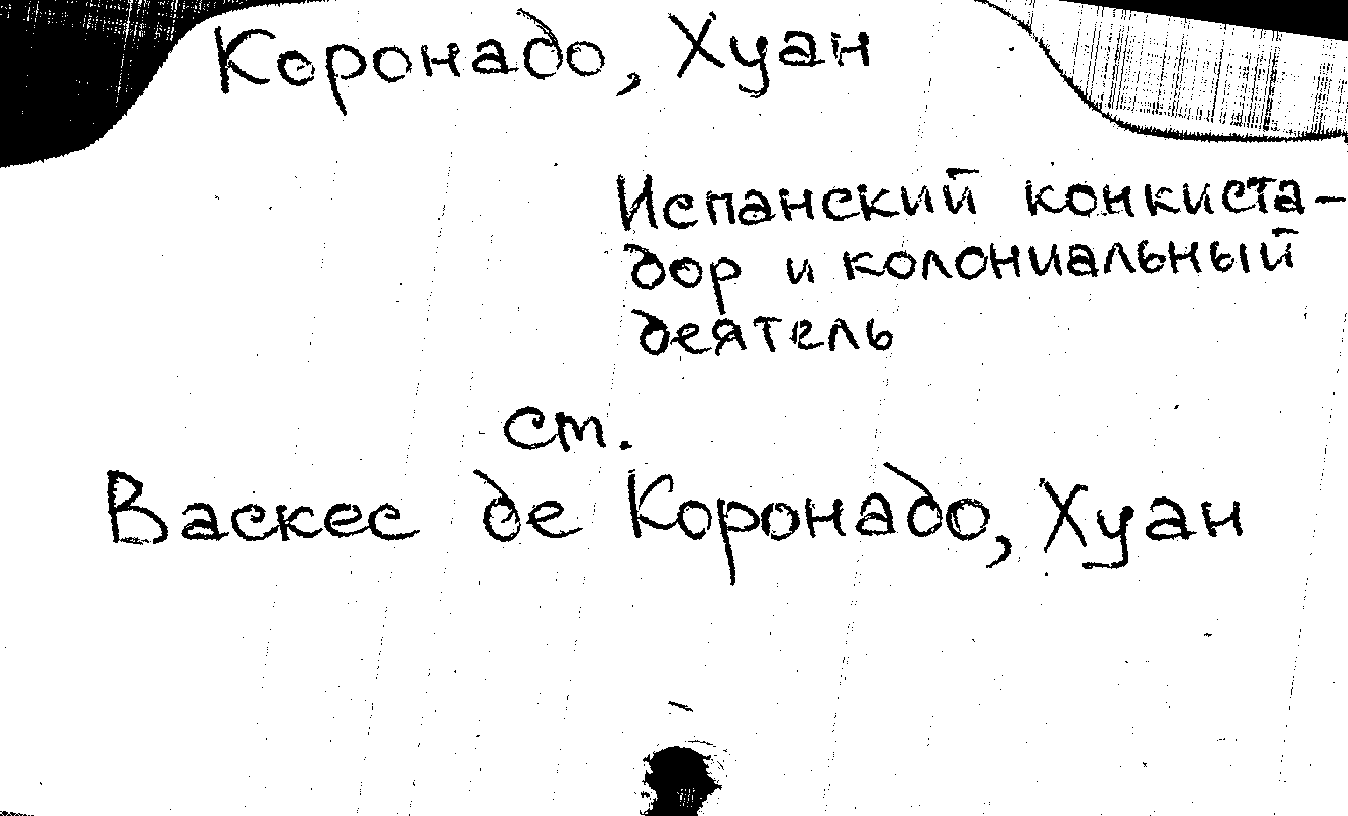 Коронадо, Хуан
Испанский конкиста-
дор и колониальный
деятель
см.
Васкес де Коронадо, Хуан